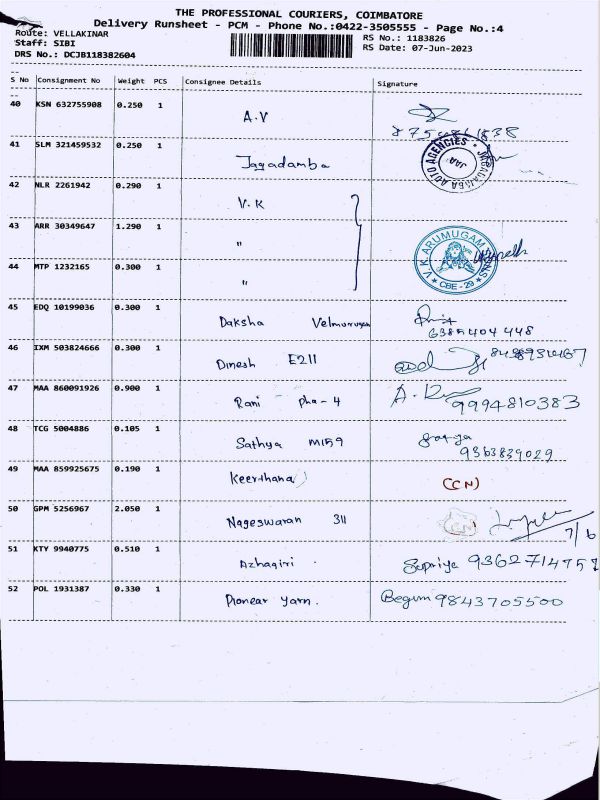 THE PROFESSIONAL COURIERS, COIMBATORE
Delivery Runsheet - PCM - Phone No.:0422-3505555 - Page No.:4
Route: VELLAKINAR
Staff: SIBI
DRS No.: DCJB118382604
RS No.: 1183826
RS Date: 07-Jun-2023
S No Consignment No Weight PCS Consignee Details Signature
40 KSN 632755908 0.250 1 A.V
41 SLM 321459532 0.250 1 Jagadamba JAGADAMBA AUTO AGENCIES
42 NLR 2261942 0.290 1 V.K
43 ARR 30349647 1.290 1 "
V.K ARUMUGAM CBE-29
44 MTP 1232165 0.300 1 "
45 EDQ 10199036 0.300 1 Daksha Velmurugan
6385404448
46 IXM 503824666 0.300 1 Dinesh E211
47 MAA 860091926 0.900 1 Rani Pha-4 9994810383
48 TCG 5004886 0.105 1 Sathya M159
9363839029
49 MAA 859925675 0.190 1 Keerthana (CN)
50 GPM 5256967 2.050 1 Nageswaran 311 CN 7/6
51 KTY 9940775 0.510 1 Azhagiri Supriya
52 POL 1931387 0.330 1 Pionear yarn. Begum 9843705500